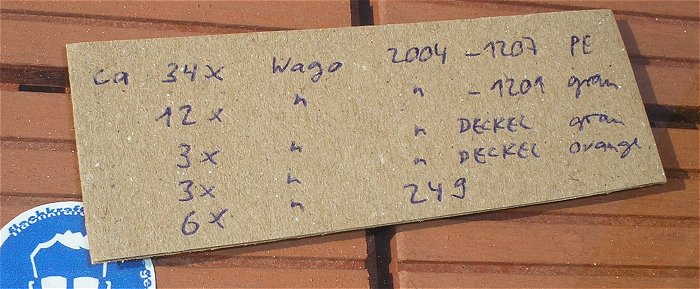 ca 34x Wago 2004 -1207 PE
12x " " -1201 grau
3x " " DECKEL grau
3x " " DECKEL orange
6x " 249
flachkraft